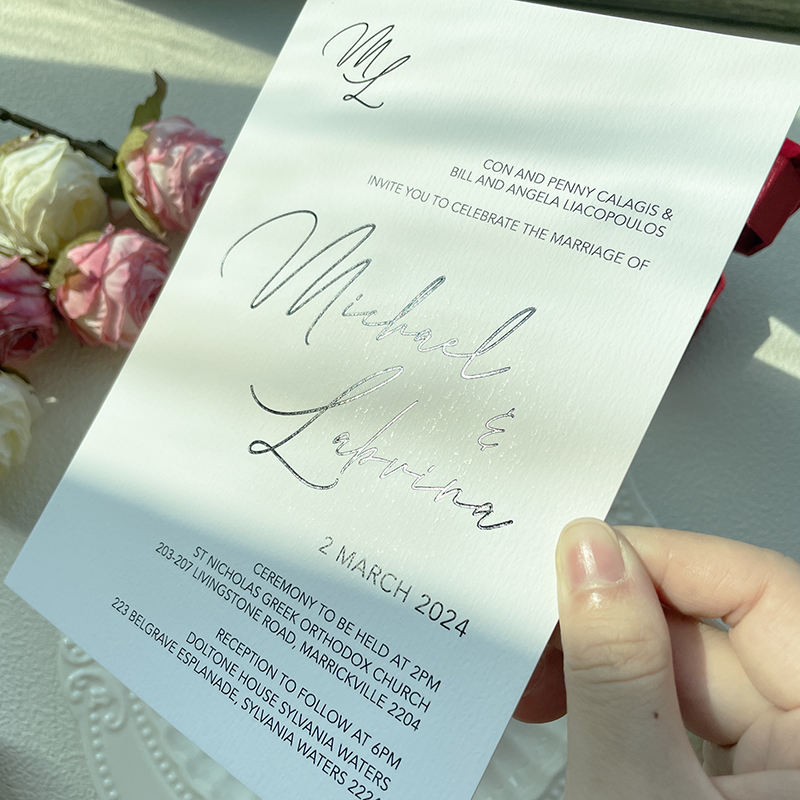 ML
CON AND PENNY CALAGIS &
BILL AND ANGELA LIACOPOULOS
INVITE YOU TO CELEBRATE THE MARRIAGE OF
Michael
&
Labrina
2 MARCH 2024
CEREMONY TO BE HELD AT 2PM
ST NICHOLAS GREEK ORTHODOX CHURCH
203-207 LIVINGSTONE ROAD, MARRICKVILLE 2204
RECEPTION TO FOLLOW AT 6PM
DOLTONE HOUSE SYLVANIA WATERS
223 BELGRAVE ESPLANADE, SYLVANIA WATERS 2224